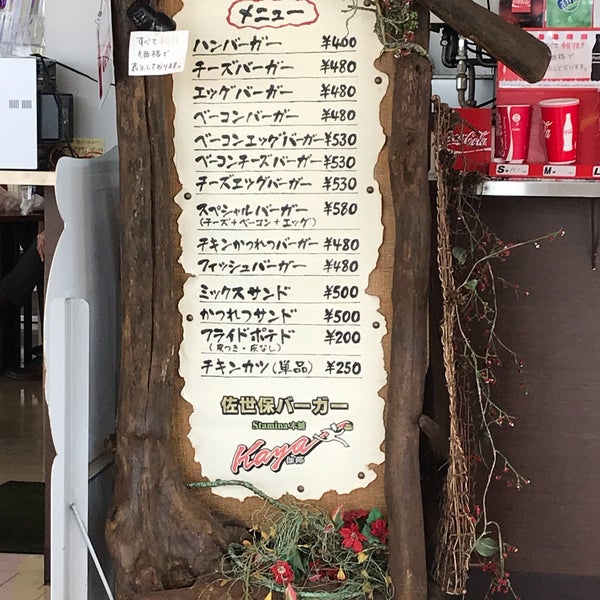 メニュー
すべて税抜
価格で
表示しております。
ハンバーガー ¥400
チーズバーガー ¥480
エッグバーガー ¥480
ベーコンバーガー ¥480
ベーコンエッグバーガー ¥530
ベーコンチーズバーガー ¥530
チーズエッグバーガー ¥530
スペシャルバーガー ¥580
(チーズ+ベーコン+エッグ)
チキンかつれつバーガー ¥480
フィッシュバーガー ¥480
ミックスサンド ¥500
かつれつサンド ¥500
フライドポテド ¥200
(皮つき・皮なし)
チキンカツ(単品) ¥250
佐世保バーガー
Stamina本舗
Kaya
伽耶
Coca-Cola
S
M
L